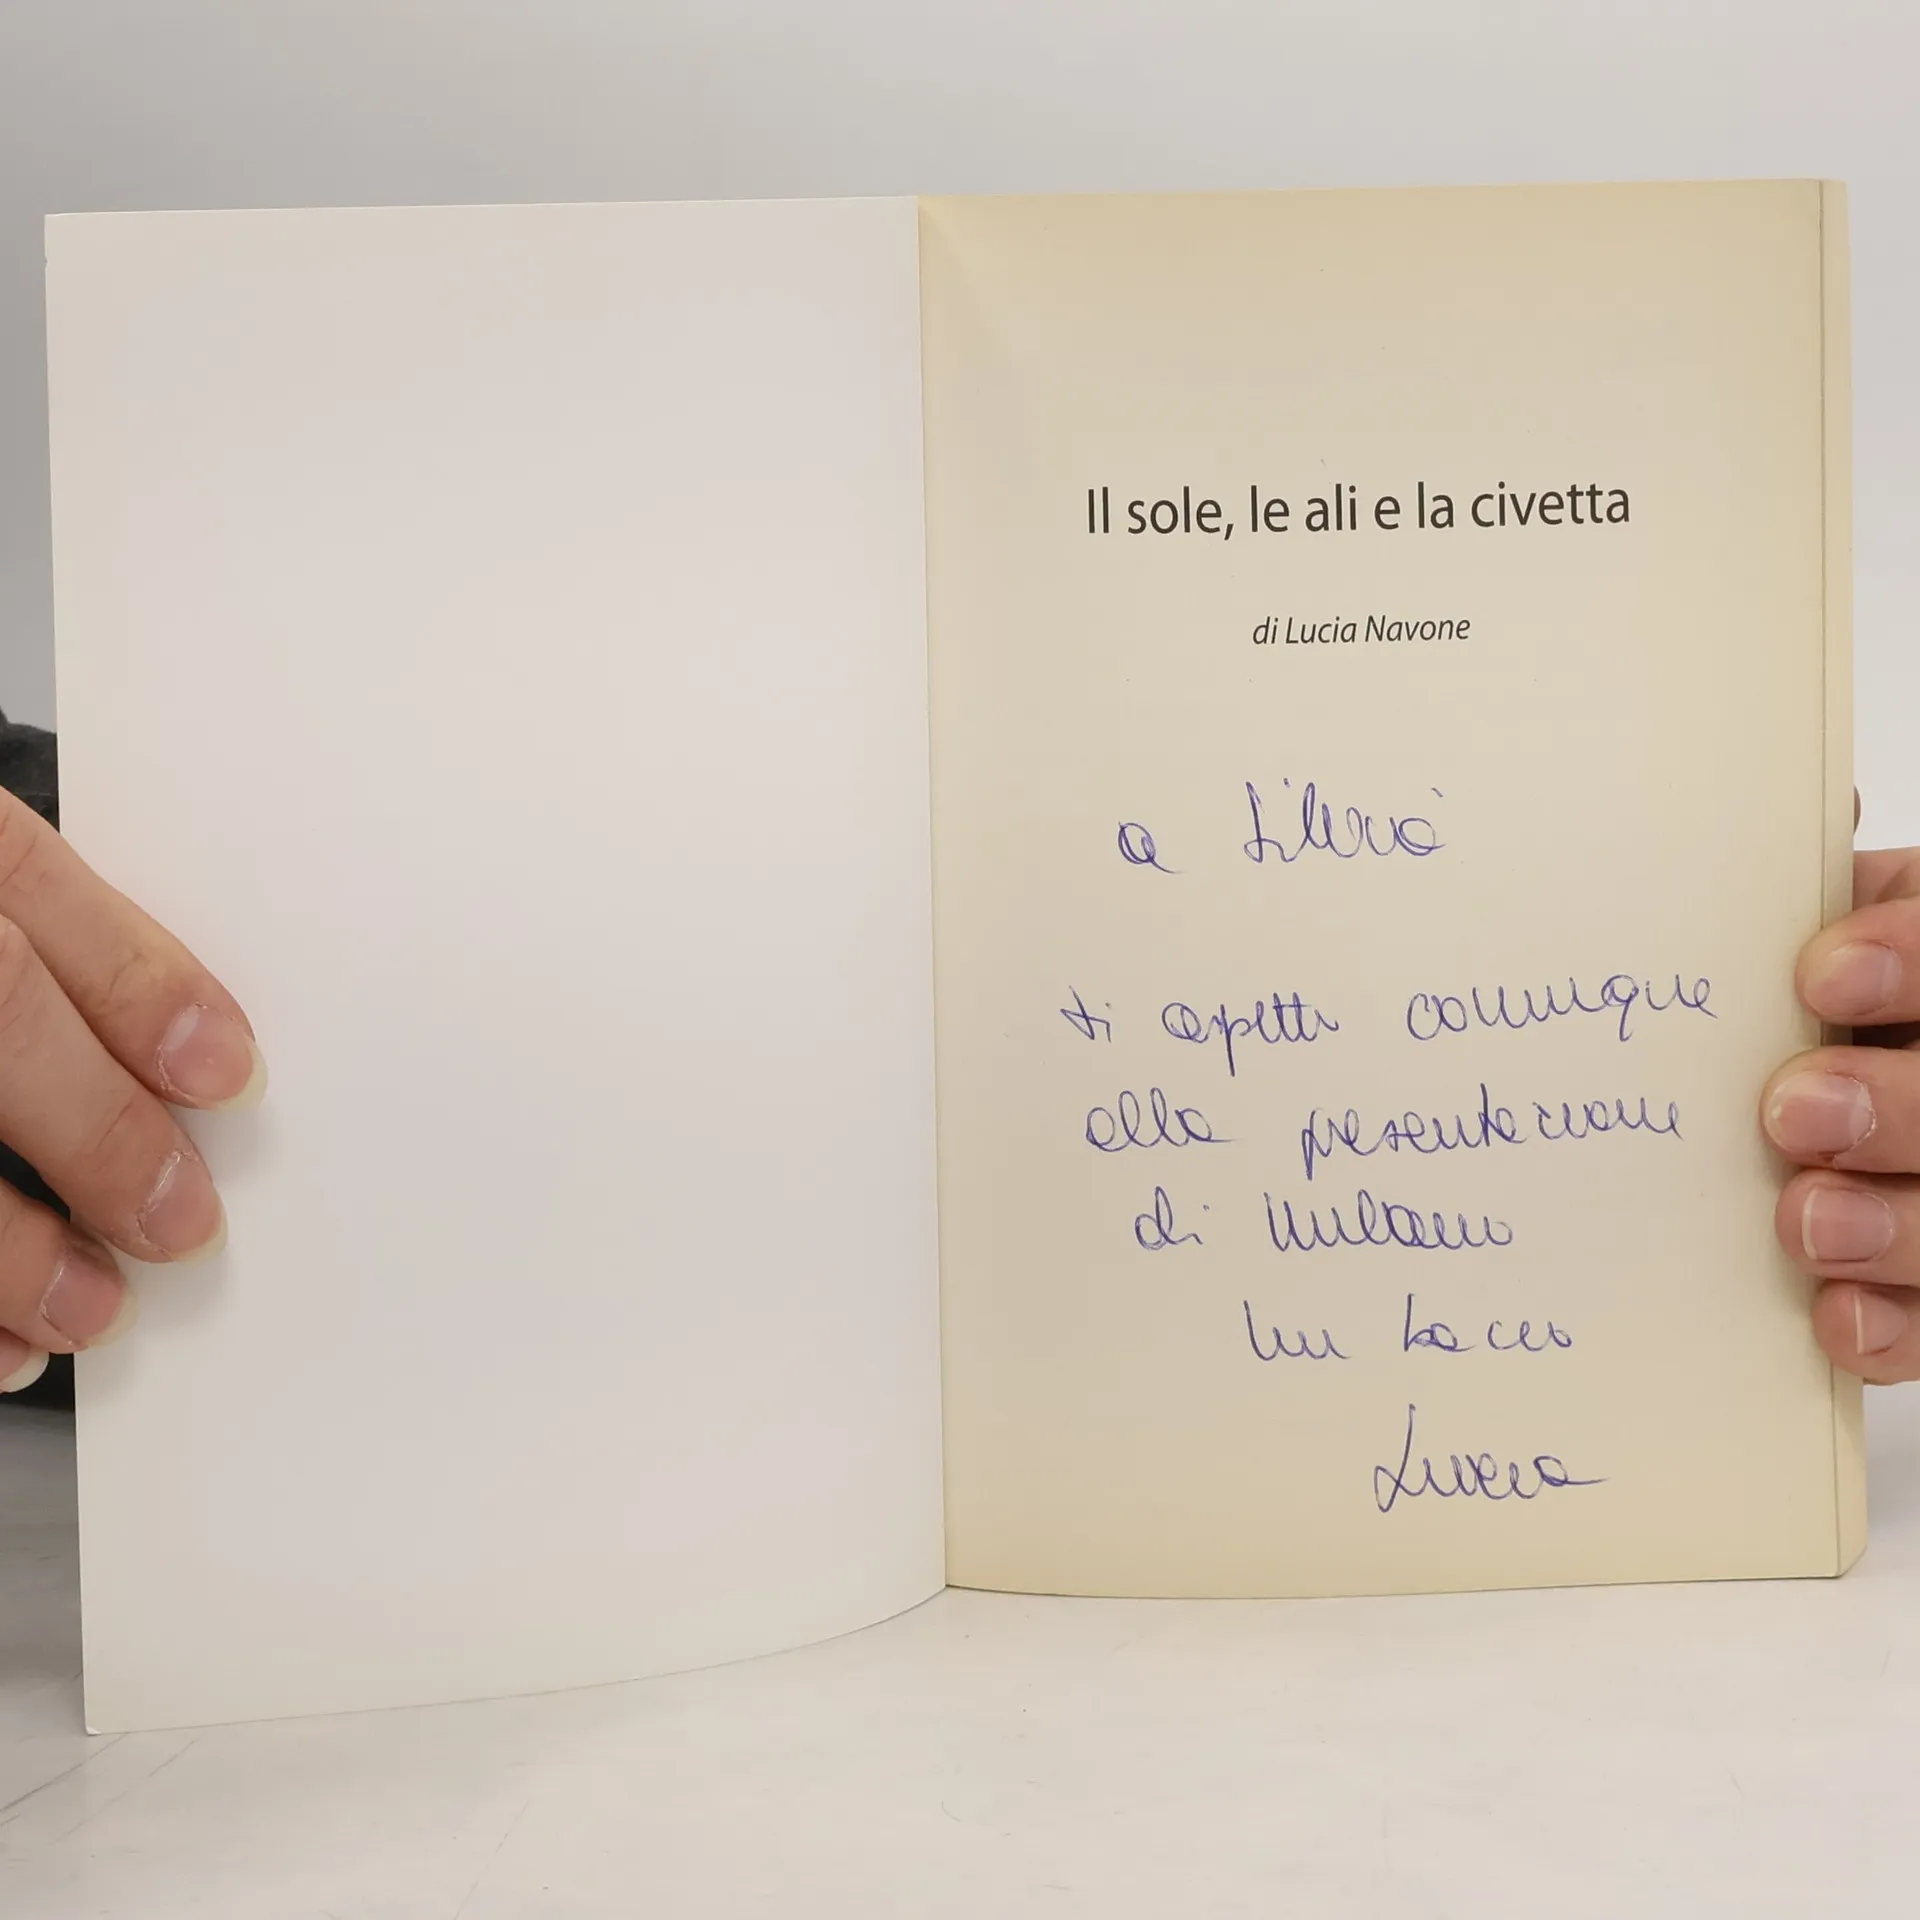 Il sole, le ali e la civetta
di Lucia Navone
a Silvia
ti aspetto comunque
alla presentazione
di Milano
Un bacio
Lucia